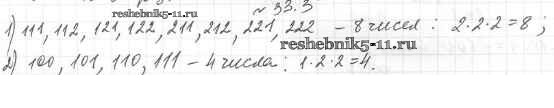 № 33.3
reshebnik5-11.ru
1) 111, 112, 121, 122, 211, 212, 221, 222 – 8 чисел : 2·2·2=8 ;
reshebnik5-11.ru
2) 100, 101, 110, 111 – 4 числа : 1·2·2=4.